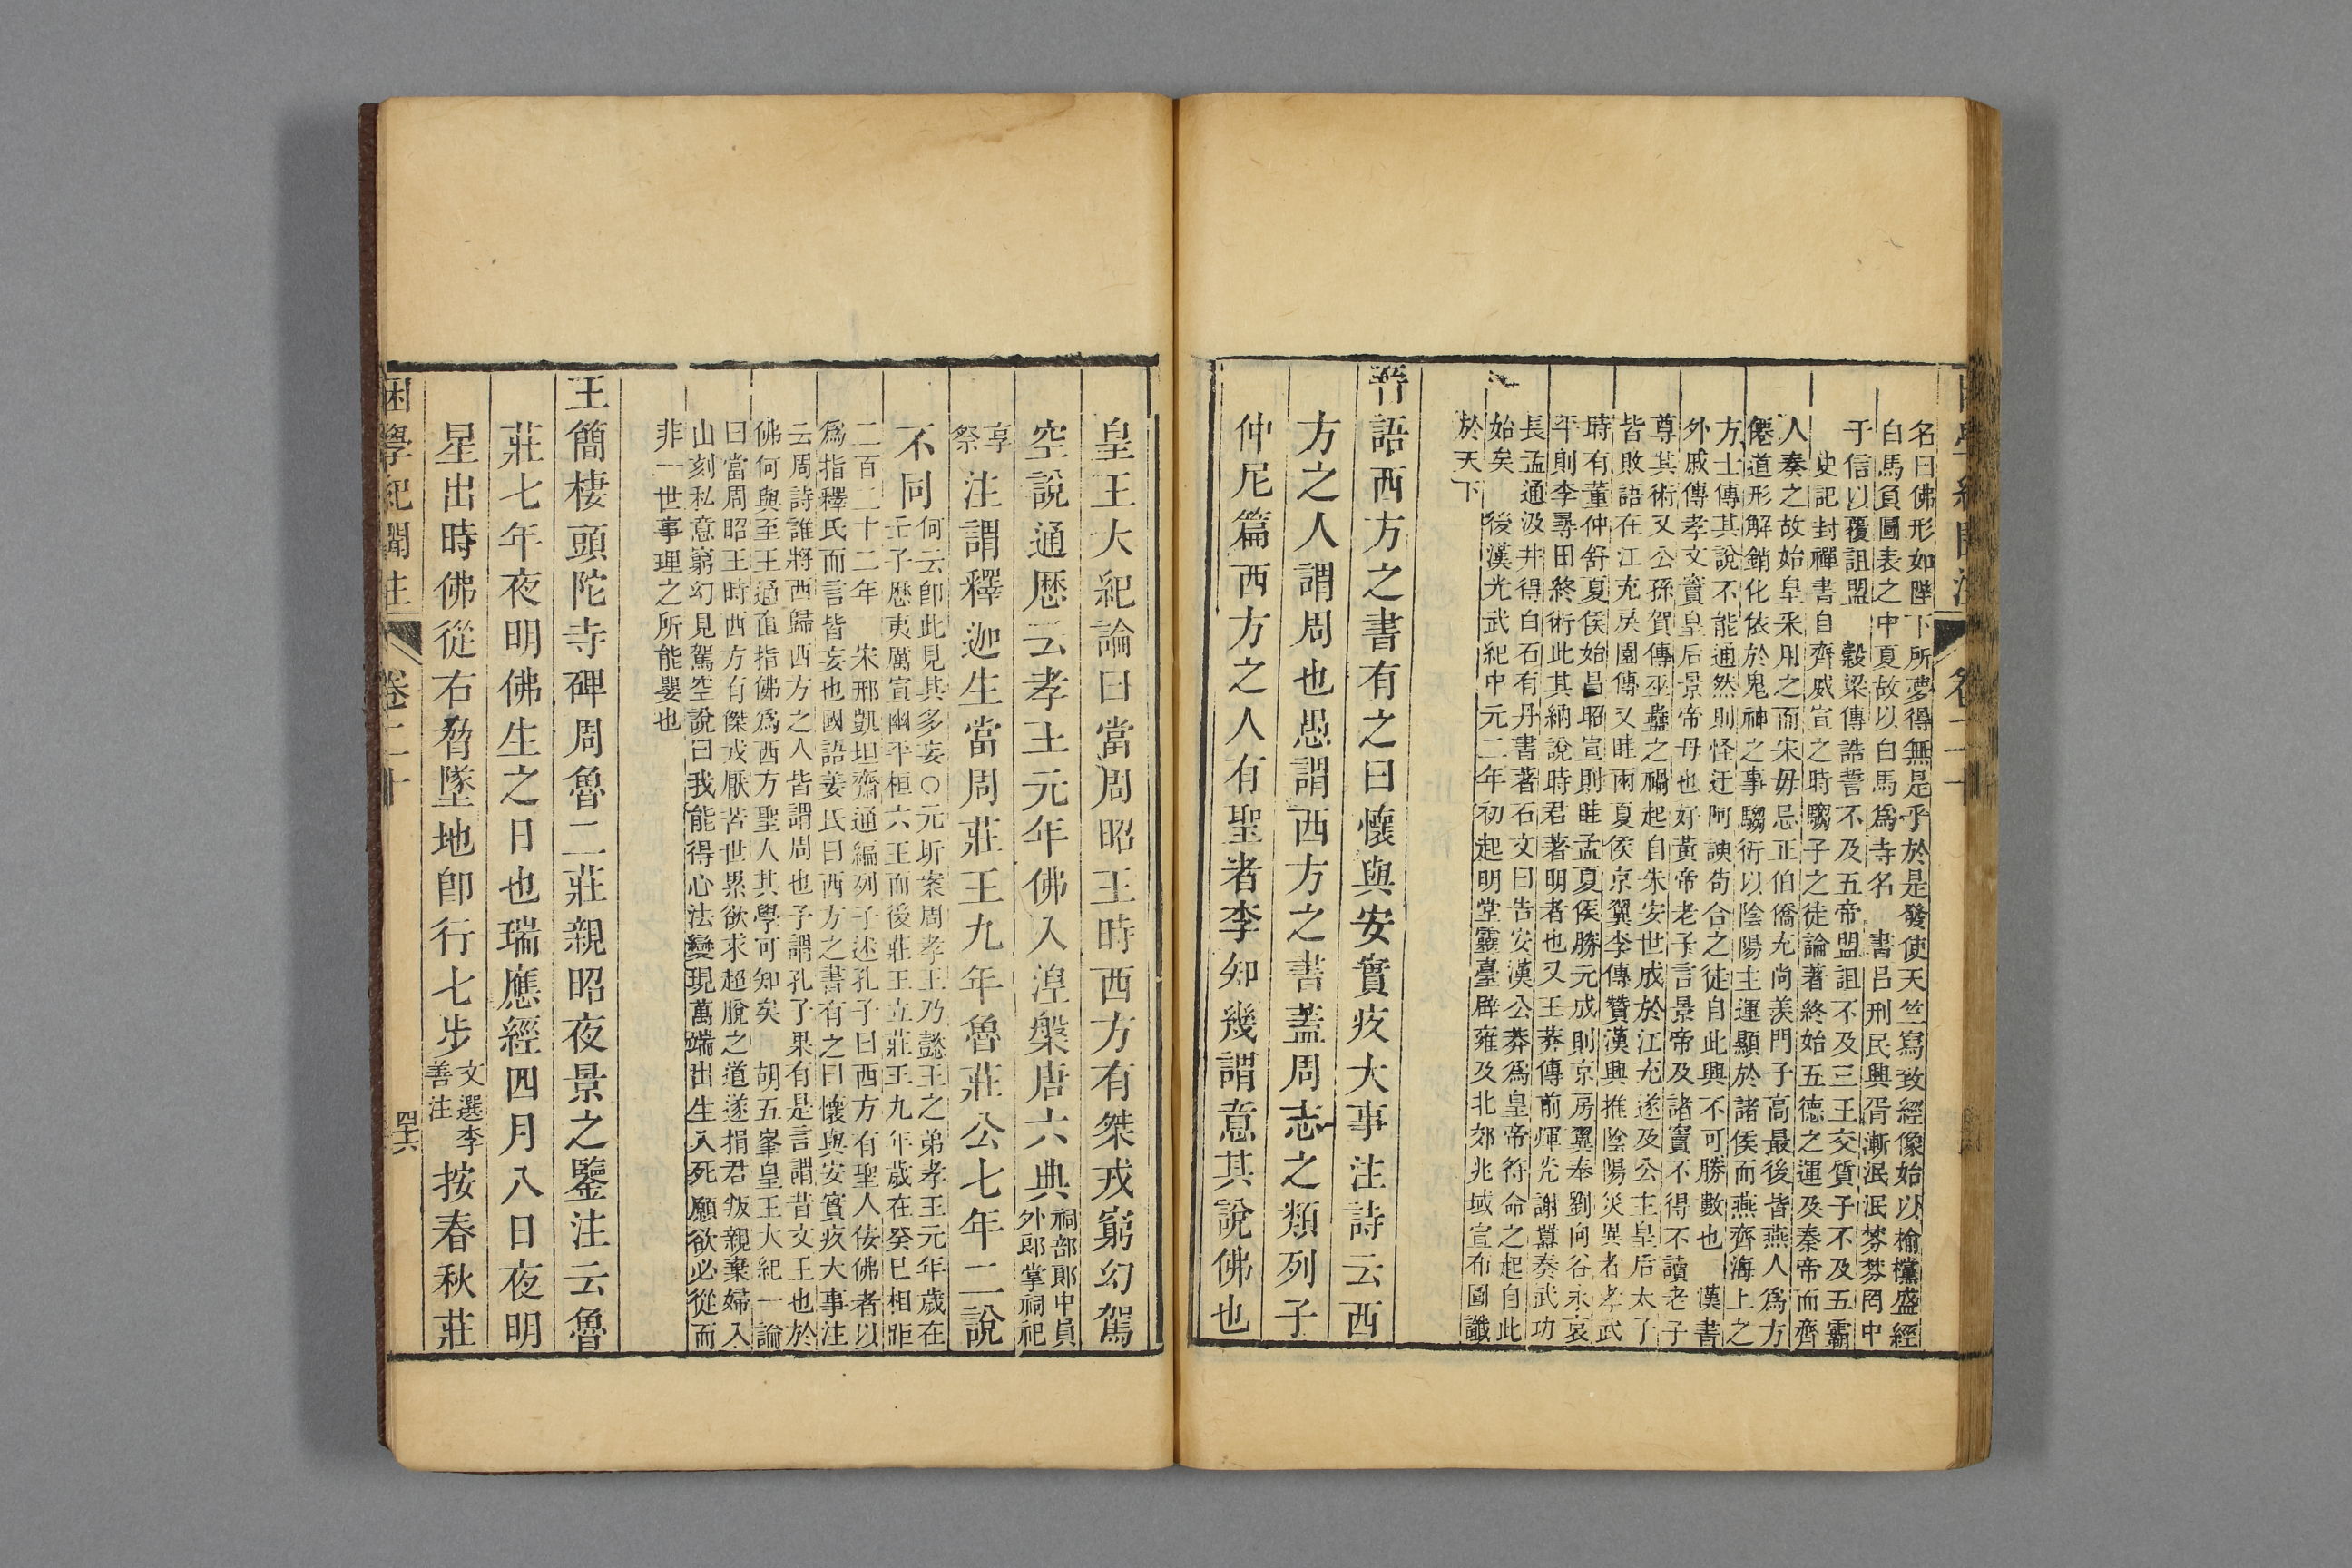 名曰佛形如陛下所夢得無是乎於是發使天竺寫致經像始以榆欓盛經
白馬負圖表之中夏故以白馬爲寺名　書呂刑民興胥漸泯泯棼棼罔中
于信以覆詛盟　穀梁傳誥誓不及五帝盟詛不及三王交質子不及五霸
史記封禪書自齊威宣之時騶子之徒論著終始五德之運及秦帝而齊
人奏之故始皇采用之而宋毋忌正伯僑充尚羨門子高最後皆燕人爲方
僊道形解銷化依於鬼神之事騶衍以陰陽主運顯於諸侯而燕齊海上之
方士傳其說不能通然則怪迂阿諛苟合之徒自此興不可勝數也　漢書
外戚傳孝文竇皇后景帝母也好黃帝老子言景帝及諸竇不得不讀老子
尊其術又公孫賀傳巫蠱之禍起自朱安世成於江充遂及公主皇后太子
皆敗語在江充戾園傳又眭兩夏侯京翼李傳贊漢興推陰陽災異者孝武
時有董仲舒夏侯始昌昭宣則眭孟夏侯勝元成則京房翼奉劉向谷永哀
平則李尋田終術此其納說時君著明者也又王莽傳前煇光謝囂奏武功
長孟通汲井得白石有丹書著石文曰告安漢公莽爲皇帝符命之起自此
始矣　後漢光武紀中元二年初起明堂靈臺辟雍及北郊兆域宣布圖讖
於天下
晉語西方之書有之曰懷與安實疚大事注詩云西
方之人謂周也愚謂西方之書蓋周志之類列子
仲尼篇西方之人有聖者李知幾謂意其說佛也
皇王大紀論曰當周昭王時西方有桀戎窮幻駕
空說通歷云孝王元年佛入湼槃唐六典祠部郎中員
外郎掌祠祀
享
祭注謂釋迦生當周莊王九年魯莊公七年二說
不同何云卽此見其多妄○元圻案周孝王乃懿王之弟孝王元年歲在
壬子歷夷厲宣幽平桓六王而後莊王立莊王九年歲在癸巳相距
二百二十二年　宋邢凱坦齋通編列子述孔子曰西方有聖人佞佛者以
爲指釋氏而言皆妄也國語姜氏曰西方之書有之曰懷與安實疚大事注
云周詩誰將西歸西方之人皆謂周也子謂孔子果有是言謂昔文王也於
佛何與至王通直指佛爲西方聖人其學可知矣　胡五峯皇王大紀一論
曰當周昭王時西方有傑戎厭苦世累欲求超脫之道遂捐君叛親棄婦入
山刻私意窮幻見駕空說曰我能得心法變現萬端出生入死願欲必從而
非一世事理之所能嬰也
王簡棲頭陀寺碑周魯二莊親昭夜景之鑒注云魯
莊七年夜明佛生之日也瑞應經四月八日夜明
星出時佛從右脅墜地卽行七步文選李
善注按春秋莊
困學紀聞注　卷二十　四十六